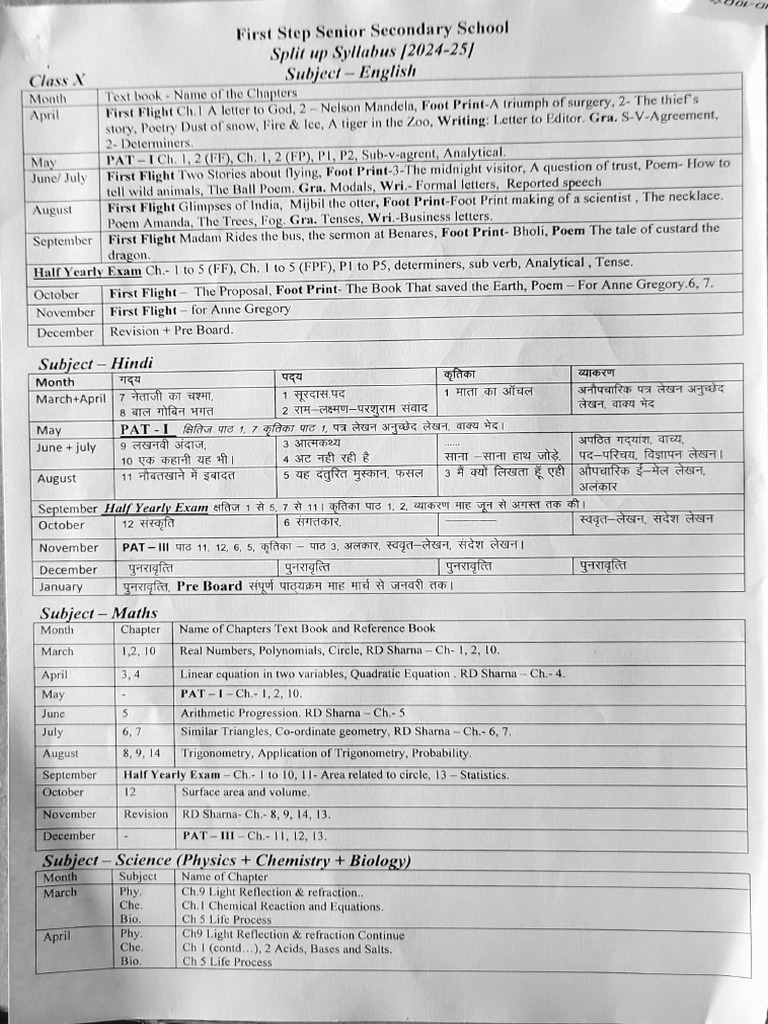 First Step Senior Secondary School
Split up Syllabus [2024-25]
Subject – English
Class X
Month Text book - Name of the Chapters
April First Flight Ch.1 A letter to God, 2 – Nelson Mandela, Foot Print-A triumph of surgery, 2- The thief's
story, Poetry Dust of snow, Fire & Ice, A tiger in the Zoo, Writing: Letter to Editor. Gra. S-V-Agreement,
2- Determiners.
May PAT – I Ch. 1, 2 (FF), Ch. 1, 2 (FP), P1, P2, Sub-v-agrent, Analytical.
June/ July First Flight Two Stories about flying, Foot Print-3-The midnight visitor, A question of trust, Poem- How to
tell wild animals, The Ball Poem. Gra. Modals, Wri.- Formal letters, Reported speech
August First Flight Glimpses of India, Mijbil the otter, Foot Print-Foot Print making of a scientist , The necklace.
Poem Amanda, The Trees, Fog. Gra. Tenses, Wri.-Business letters.
September First Flight Madam Rides the bus, the sermon at Benares, Foot Print- Bholi, Poem The tale of custard the
dragon.
Half Yearly Exam Ch.- 1 to 5 (FF), Ch. 1 to 5 (FPF), P1 to P5, determiners, sub verb, Analytical , Tense.
October First Flight – The Proposal, Foot Print- The Book That saved the Earth, Poem – For Anne Gregory.6, 7.
November First Flight – for Anne Gregory
December Revision + Pre Board.
Subject – Hindi
Month गद्य पद्य कृतिका व्याकरण
March+April 7 नेताजी का चश्मा, 1 सूरदास.पद 1 माता का आँचल अनौपचारिक पत्र लेखन अनुच्छेद
8 बाल गोबिन भगत 2 राम–लक्ष्मण–परशुराम संवाद लेखन, वाक्य भेद
May PAT - I क्षितिज पाठ 1, 7 कृतिका पाठ 1, पत्र लेखन अनुच्छेद लेखन, वाक्य भेद।
June + july 9 लखनवी अंदाज, 3 आत्मकथ्य ...... अपठित गद्यांश, वाच्य,
10 एक कहानी यह भी। 4 अट नही रही है साना –साना हाथ जोड़े, पद–परिचय, विज्ञापन लेखन।
August 11 नौबतखाने में इबादत 5 यह दंतुरित मुस्कान, फसल 3 मैं क्यों लिखता हूँ एही औपचारिक ई–मेल लेखन,
अलंकार
September Half Yearly Exam क्षतिज 1 से 5, 7 से 11। कृतिका पाठ 1, 2, व्याकरण माह जून से अगस्त तक की।
October 12 संस्कृति 6 संगतकार, ———— स्ववृत–लेखन, संदेश लेखन
November PAT – III पाठ 11, 12, 6, 5, कृतिका – पाठ 3, अलकार, स्ववृत–लेखन, संदेश लेखन।
December पुनरावृत्ति पुनरावृत्ति पुनरावृत्ति पुनरावृत्ति
January पुनरावृत्ति, Pre Board संपूर्ण पाठ्यक्रम माह मार्च से जनवरी तक।
Subject – Maths
Month Chapter Name of Chapters Text Book and Reference Book
March 1,2, 10 Real Numbers, Polynomials, Circle, RD Sharna – Ch- 1, 2, 10.
April 3, 4 Linear equation in two variables, Quadratic Equation . RD Sharna – Ch.- 4.
May - PAT – I – Ch.- 1, 2, 10.
June 5 Arithmetic Progression. RD Sharna – Ch.- 5
July 6, 7 Similar Triangles, Co-ordinate geometry, RD Sharna – Ch.- 6, 7.
August 8, 9, 14 Trigonometry, Application of Trigonometry, Probability.
September Half Yearly Exam – Ch.- 1 to 10, 11- Area related to circle, 13 – Statistics.
October 12 Surface area and volume.
November Revision RD Sharna- Ch.- 8, 9, 14, 13.
December - PAT – III – Ch.- 11, 12, 13.
Subject – Science (Physics + Chemistry + Biology)
Month Subject Name of Chapter
March Phy. Ch.9 Light Reflection & refraction..
Che. Ch.1 Chemical Reaction and Equations.
Bio. Ch 5 Life Process
April Phy. Ch9 Light Reflection & refraction Continue
Che. Ch 1 (contd...), 2 Acids, Bases and Salts.
Bio. Ch 5 Life Process